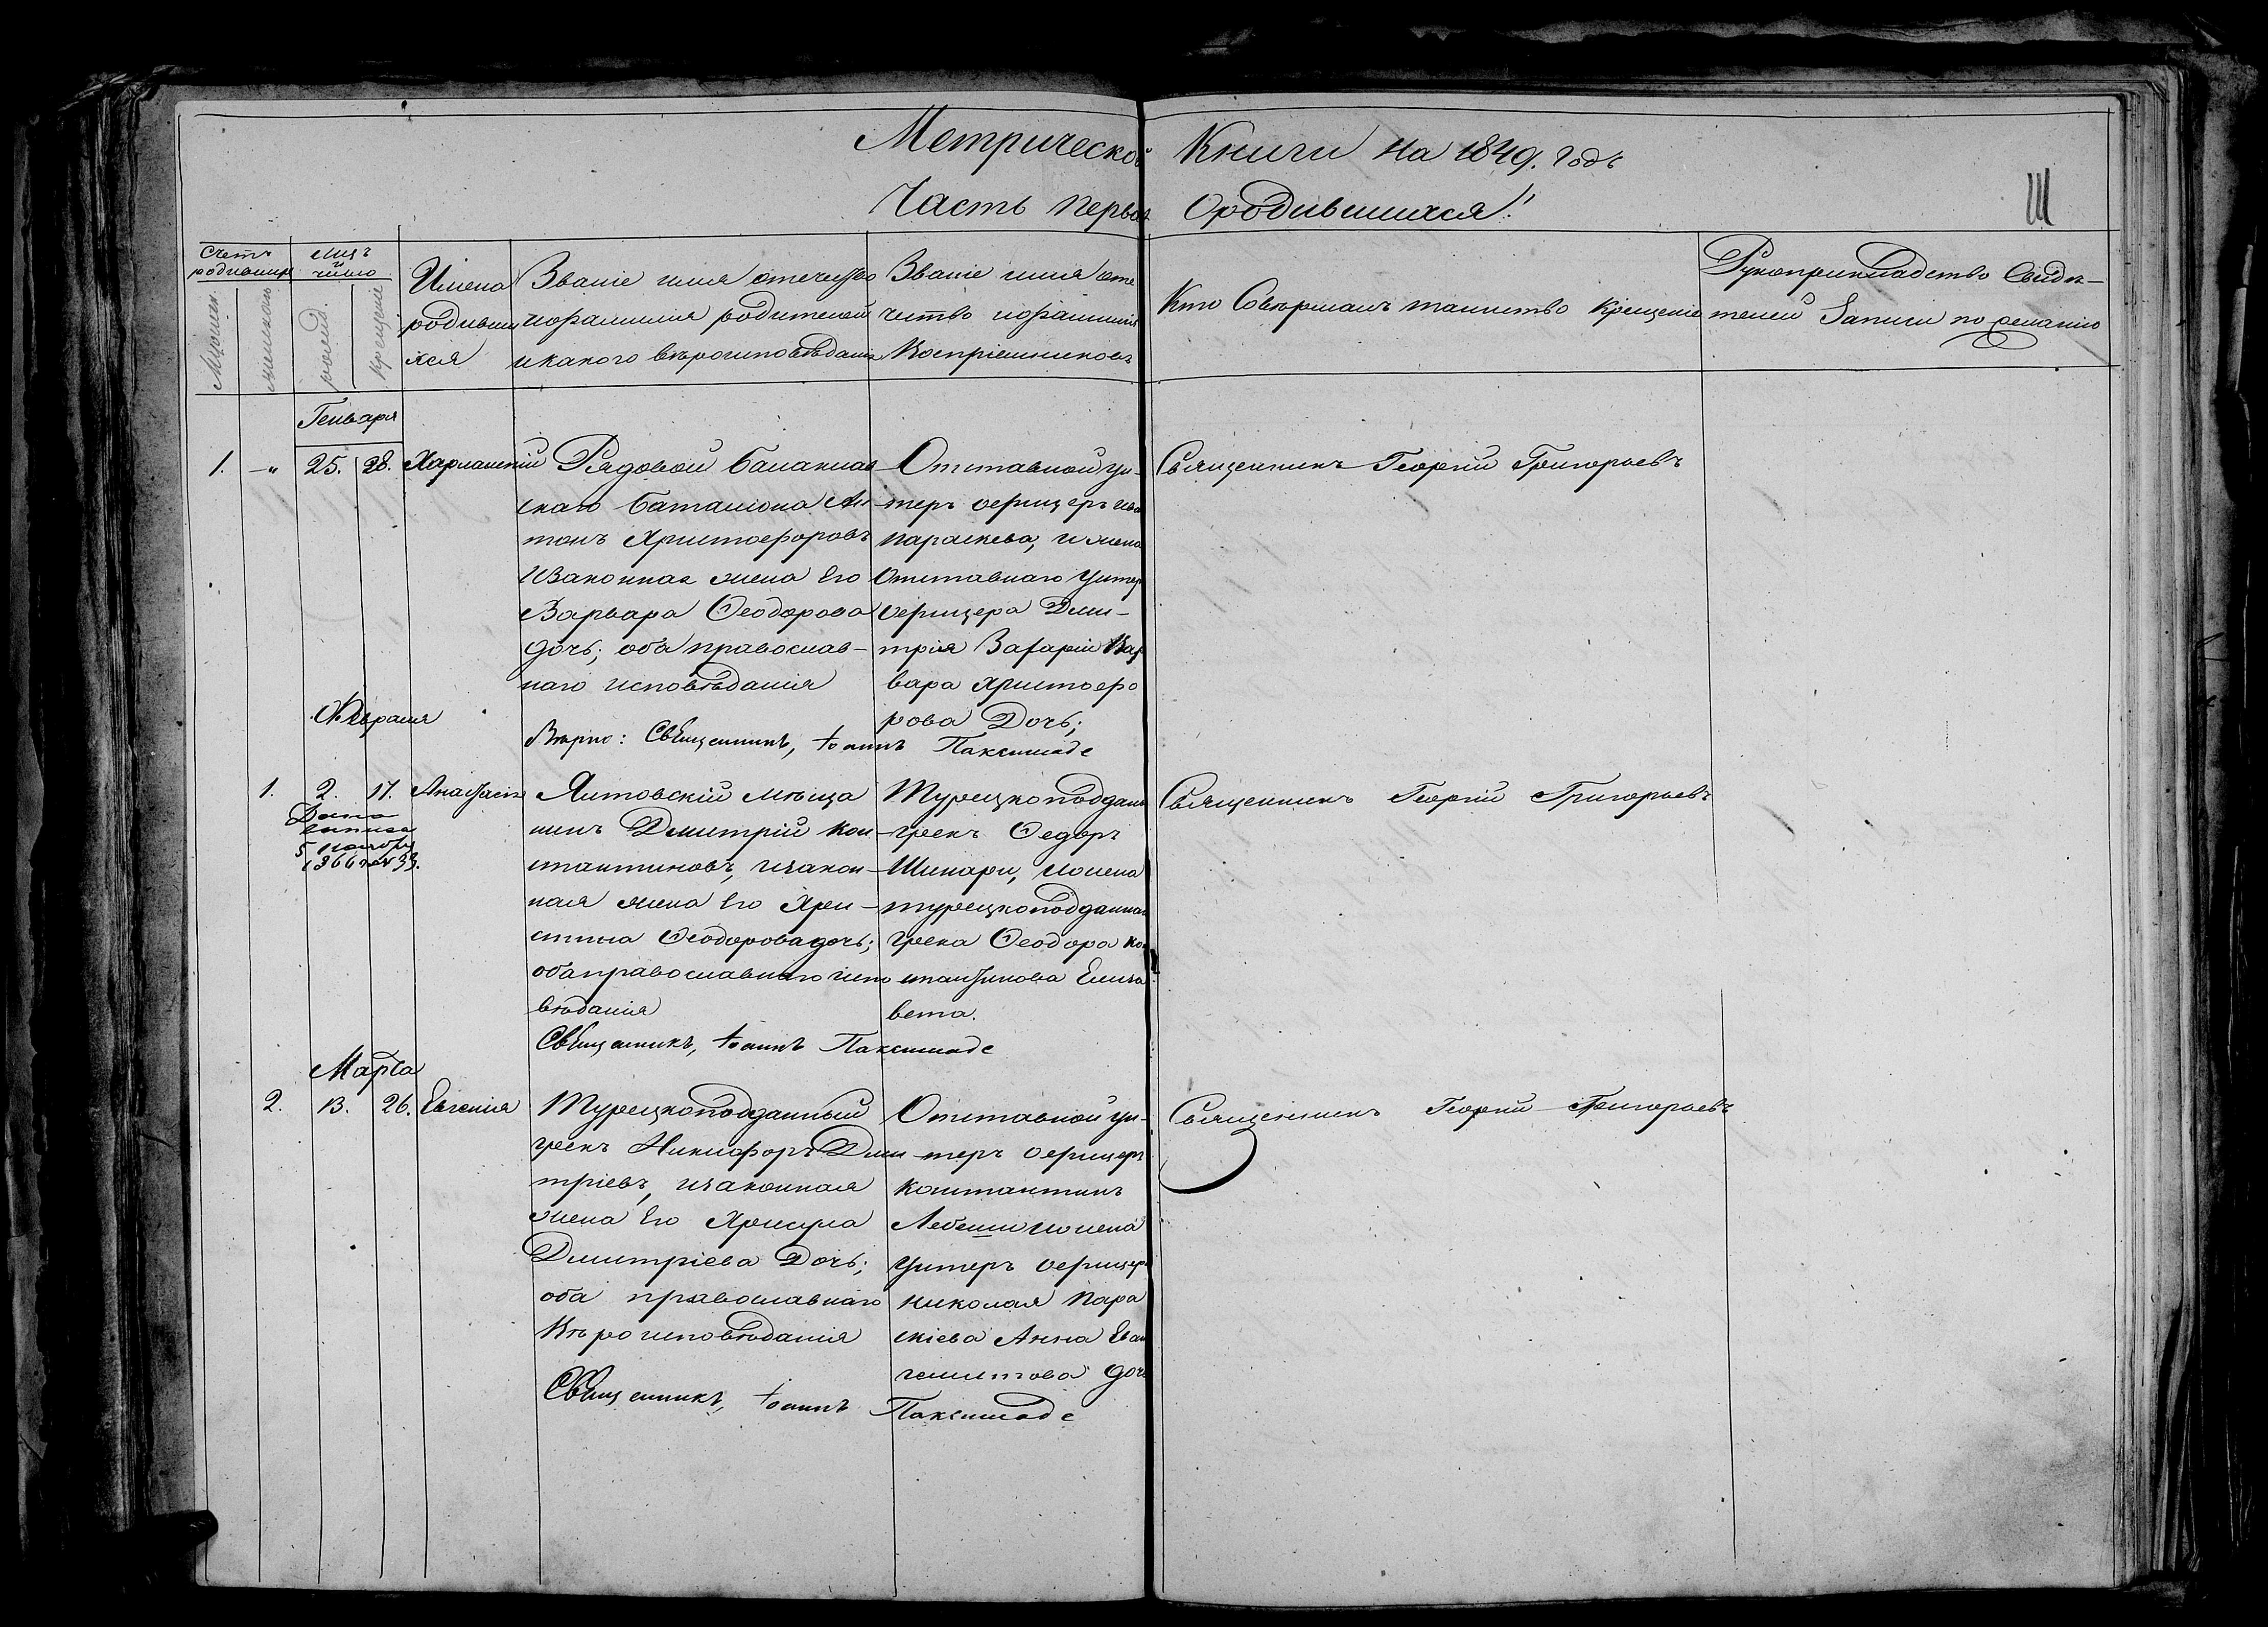 Метрической Книги на 1849. годъ
Часть первая О родившихся!
III
Счетъ родившихся
Мужеска.
женскаго.
мцъ и число
рожд.
крещение
Имена
родивши
хся
Званіе имя отечество
и фамилія родителей
и какого вѣроисповѣданія
Званіе имя оте
чество и фамилія
Воспріемниковъ
Кто Совершалъ таинство крещение
Рукоприкладство Свидѣ-
телей Записи по желанію
Генваря
1. -„ 25. 28. Харлампій
Рядовой балаклав
скаго баталіона Ан-
тонъ Христофоровъ
и Законная жена Его
Варвара Феодорова
дочь; оба православ-
наго исповѣданія
Отставной ун-
теръ Офицеръ
параскева, и жена
Отставнаго Унтеръ
Офицера Дми-
трія Вафарій Вар
вара Христофо
рова Дочь;
Священникъ Георгій Григорьевъ
Вѣрно: Священникъ, Іоаннъ Паксимаде
Февраля
1. 2. 17. Анастасія
Дана
выписа
5 ноября
1866 № 33.
Ялтовскій мѣща
нинъ Дмитрій Кон-
стантиновъ, и закон-
ная жена Его Хри-
стина Феодорова дочь;
оба православнаго испо
вѣданія
Турецкоподдан
грекъ Федоръ
Шинари, и жена
турецкоподданнаго
грека Феодора Кон
стантинова Елиза
вета.
Священникъ Георгій Григорьевъ
Священникъ, Іоаннъ Паксимаде
Марта
2. 13. 26. Евгенія
Турецкоподданный
грекъ Никифоръ Дми
тріевъ, и законная
жена Его Хрисула
Дмитріева Дочь;
оба православнаго
Вѣроисповѣданія
Отставной ун-
теръ Офицеръ
Константинъ
Лебеши и жена
Унтеръ Офицера
николая Пара
скіева Анна Еван
гелистова дочь
Священникъ Георгій Григорьевъ
Священникъ, Іоаннъ Паксимаде